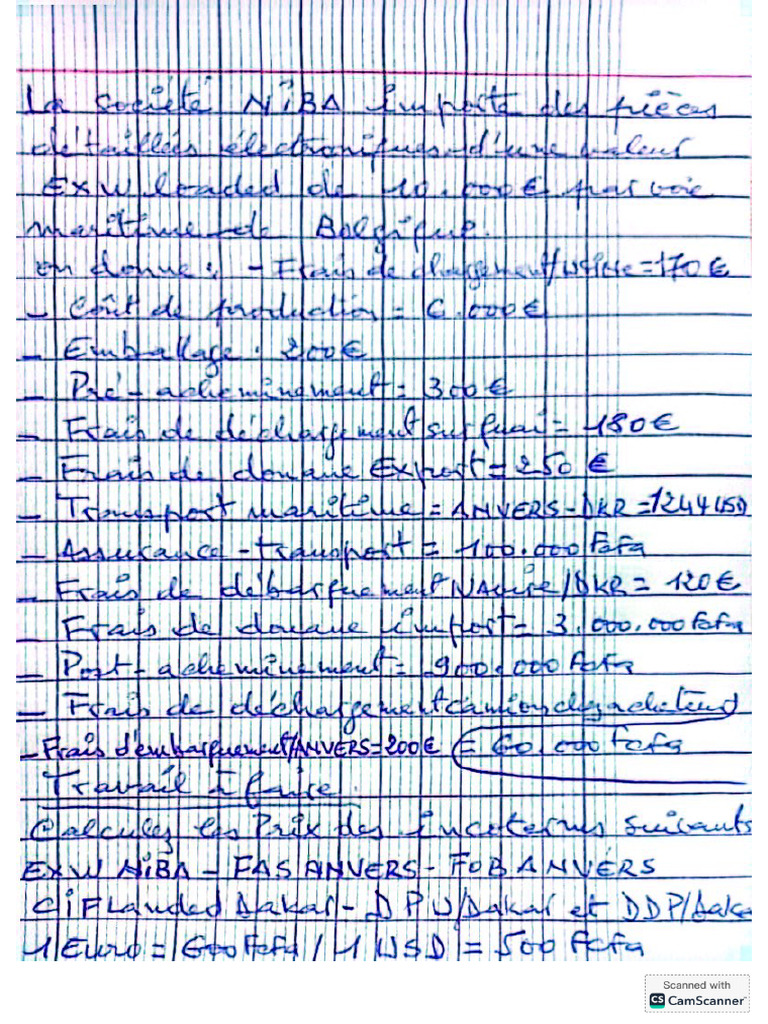 La société NiBA importe des pièces
détaillées électroniques d'une valeur
EXW loaded de 10.000€ par voie
maritime de Belgique.
on donne : - Frais de chargement/USINE = 170 €
- Coût de production = 6.000€
- Emballage : 200€
- Pré-acheminement = 300€
- Frais de déchargement sur quai = 180€
- Frais de douane Export = 250 €
- Transport maritime = ANVERS-DKR = 1244 USD
- Assurance-transport = 100.000 Fcfa
- Frais de débarquement NAvire/DKR = 120€
- Frais de douane import = 3.000.000 Fcfa
- Post-acheminement = 900.000 Fcfa
- Frais de déchargement camion chez acheteur
- Frais d'embarquement/ANVERS = 200€ = 60.000 Fcfa
Travail à faire
Calculez les Prix des incoterms suivants
EXW NiBA - FAS ANVERS - FOB ANVERS
CiF Landed Dakar - DPU/Dakar et DDP/Daka
1 Euro = 600 Fcfa / 1 USD = 500 Fcfa
Scanned with
CS CamScanner